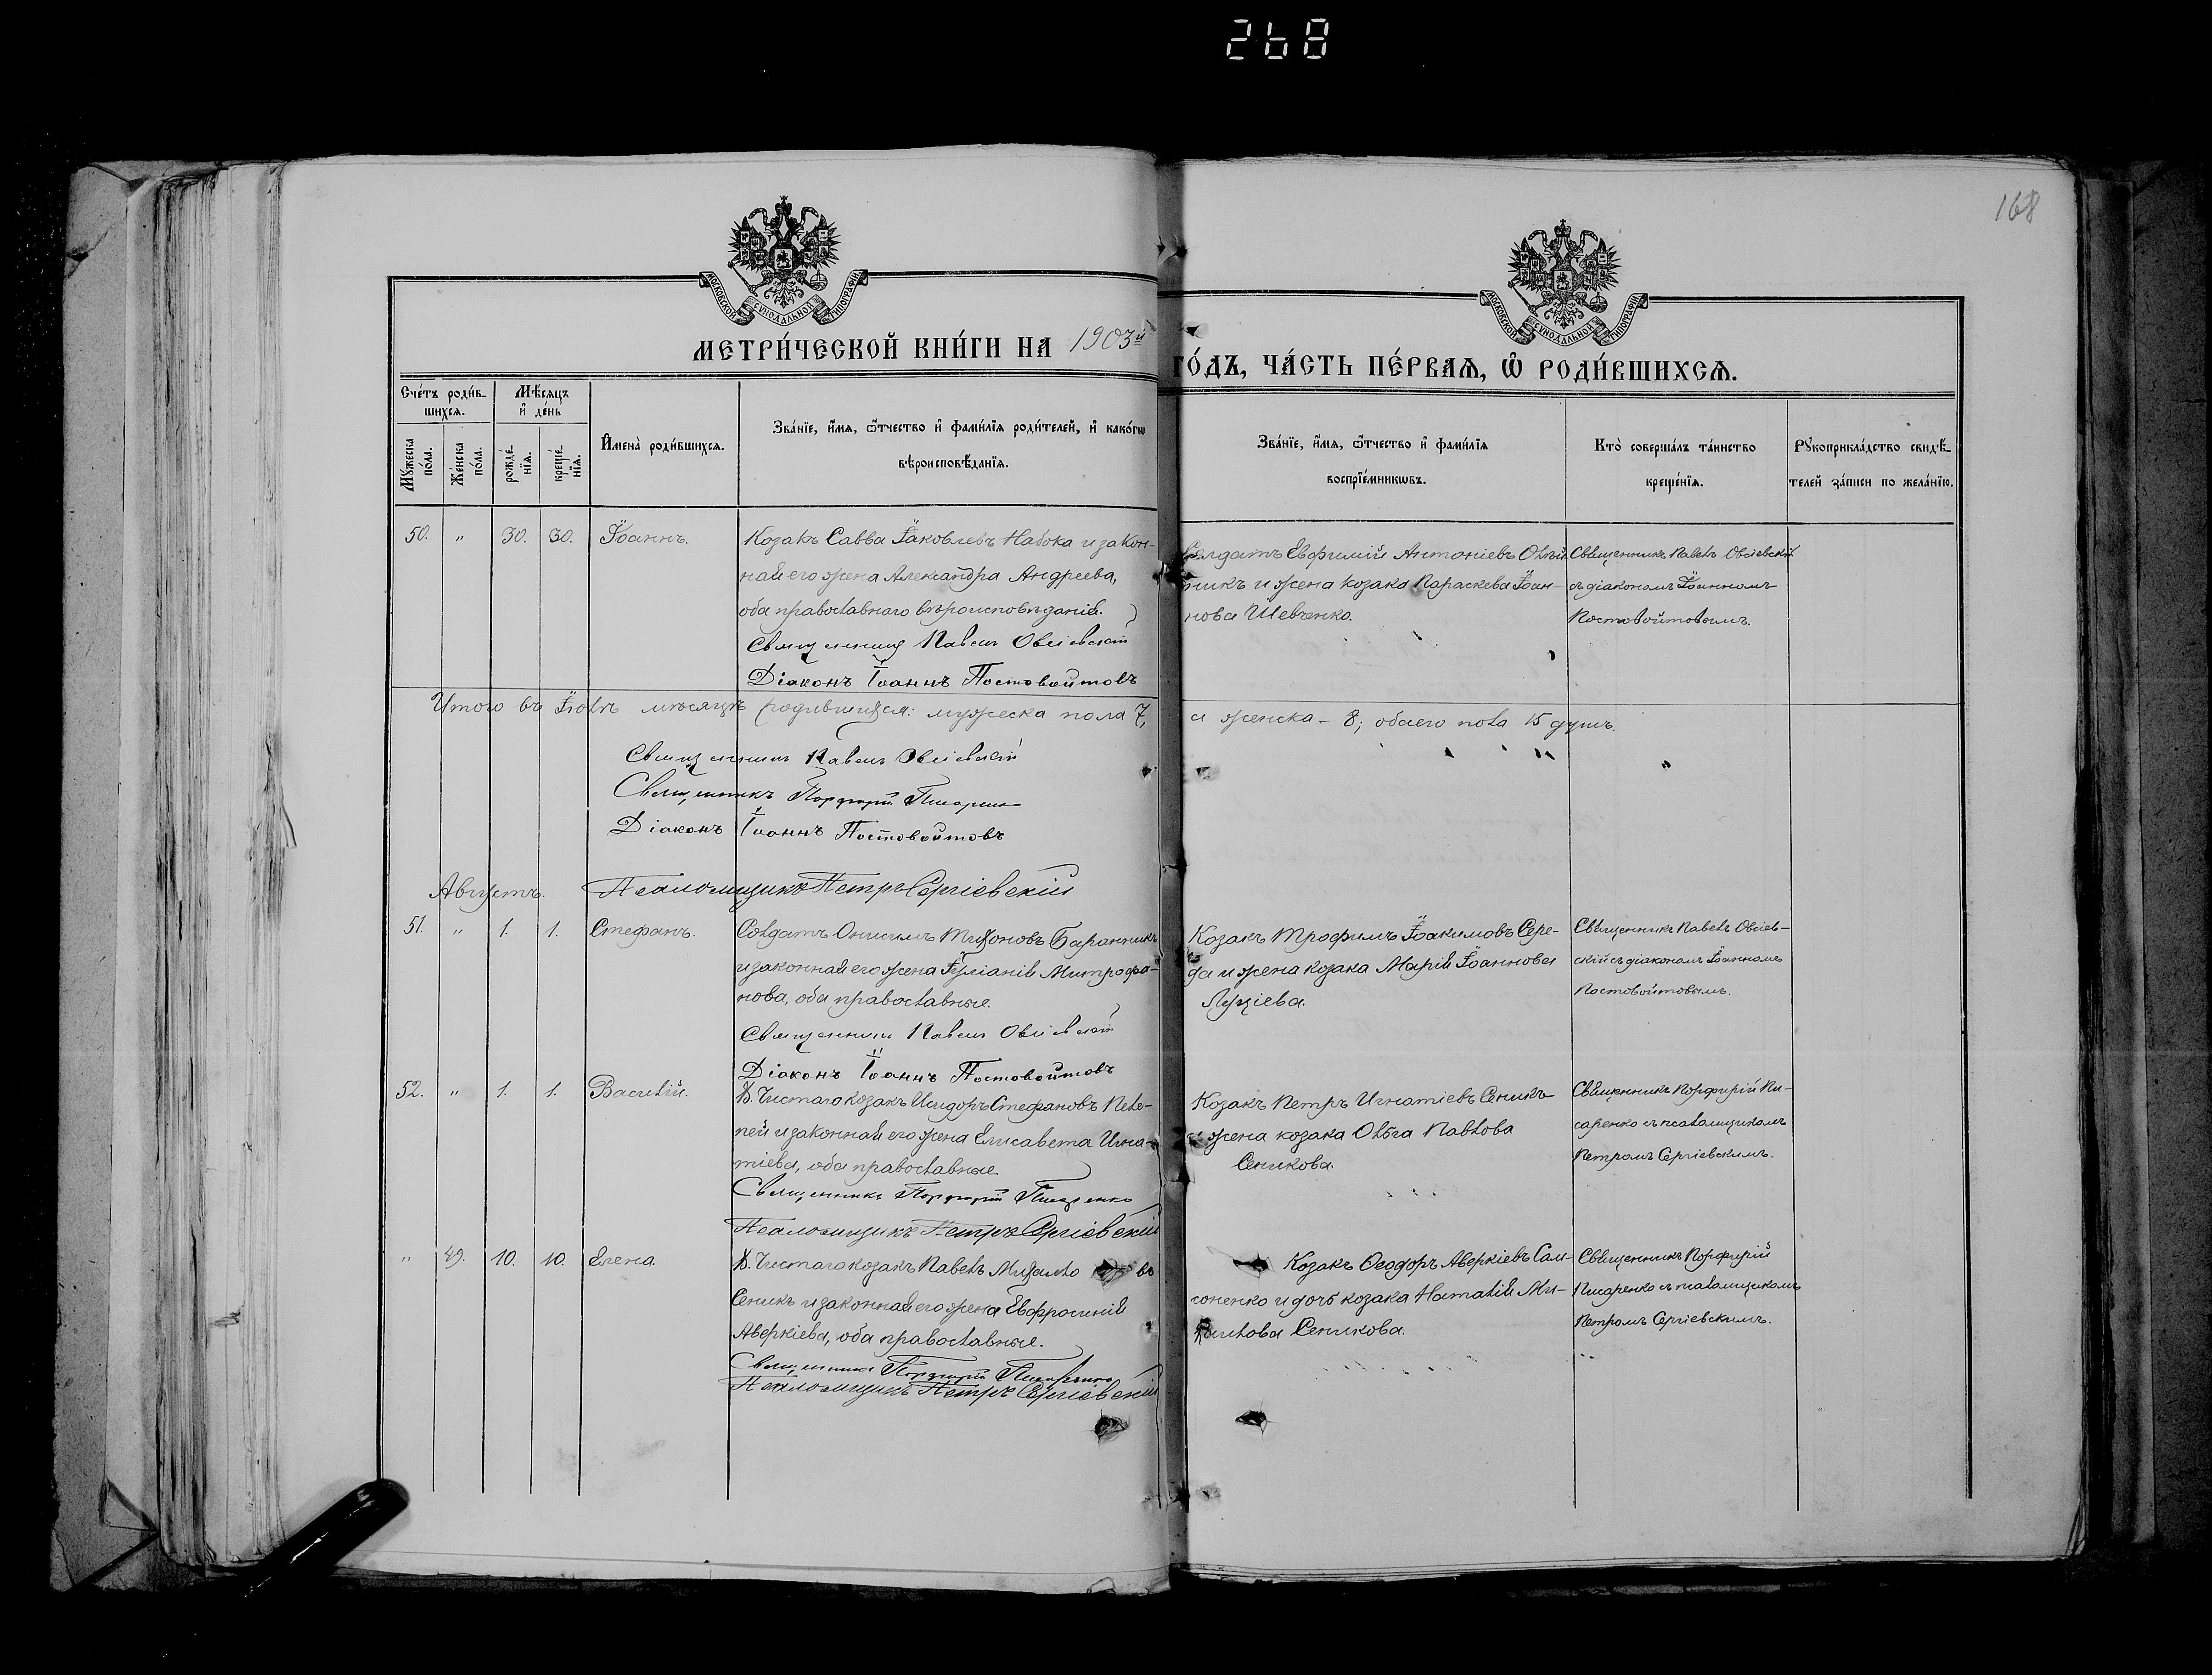 268
168
МОСКОВСКОЙ СѴНОДАЛЬНОЙ ТИПОГРАФІИ
МОСКОВСКОЙ СѴНОДАЛЬНОЙ ТИПОГРАФІИ
МЕТРИ́ЧЕСКОЙ КНИ́ГИ НА 1903й
ГО́ДЪ, ЧА́СТЬ ПЕ́РВАѦ, Ѡ҆ РОДИ́ВШИХСѦ.
Сче́тъ роди́в-
шихсѧ.
Мѣ́сѧцъ
и҆ де́нь
Мꙋ́жеска
по́ла.
Же́нска
по́ла.
рожде́-
нїѧ.
креще́-
нїѧ.
И҆мена̀ роди́вшихсѧ.
Зва́нїе, и҆́мѧ, ѻ҆́тчество и҆ фами́лїѧ роди́телей, и҆ како́гѡ
вѣроисповѣ́данїѧ.
Зва́нїе, и҆́мѧ, ѻ҆́тчество и҆ фами́лїѧ
воспрїе́мникѡвъ.
Кто̀ соверша́лъ та́инство
креще́нїѧ.
Рꙋкоприкла́дство свидѣ́-
телей за́писи по жела́нїю.
50. " 30. 30. Іоаннъ.
Козакъ Савва Іаковлевъ Набока и закон-
ная его жена Александра Андреева,
оба православнаго вѣроисповѣданія.
Священникъ Павелъ Овсіевскій
Діаконъ Іоаннъ Постовойтовъ
Солдатъ Евфимій Антоніевъ Олѣй
никъ и жена козака Параскева Іоан-
нова Шевченко.
Священникъ Павелъ Овсіевскій
съ діакономъ Іоанномъ
Постовойтовымъ.
Итого въ Іюлѣ мѣсяцѣ родившихся: мужеска пола 7,
и женска – 8; обоего пола 15 душъ.
Священникъ Павелъ Овсіевскій
Священникъ Порфирій Писаренко
Діаконъ Іоаннъ Постовойтовъ
Псаломщикъ Петръ Сергіевскій
Августъ.
51. " 1. 1. Стефанъ.
Солдатъ Онисимъ Тихоновъ Баранникъ
и законная его жена Іуліанія Митрофа-
нова, оба православные.
Священникъ Павелъ Овсіевскій
Діаконъ Іоаннъ Постовойтовъ
Козакъ Трофимъ Іоакимовъ Сере-
да и жена козака Марія Іоаннова
Священникъ Павелъ Овсіев-
скій съ діакономъ Іоанномъ
Постовойтовымъ.
52. " 1. 1. Василій.
Х. Чистаго козакъ Исидоръ Стефановъ Пеле-
пей и законная его жена Елисавета Игна-
тіева, оба православные.
Священникъ Порфирій Писаренко
Псаломщикъ Петръ Сергіевскій
Козакъ Петръ Игнатіевъ Сеникъ
и жена козака Ольга Павлова
Сеникова.
Священникъ Порфирій Пи-
саренко съ псаломщикомъ
Петромъ Сергіевскимъ.
" 49. 10. 10. Елена.
Х. Чистаго козакъ Павелъ Михайло въ
Сеникъ и законная его жена Евфросинія
Аверкіева, оба православные.
Священникъ Порфирій Писаренко
Псаломщикъ Петръ Сергіевскій
Козакъ Ѳеодоръ Аверкіевъ Сам-
соненко и дочь козака Наталія Ми-
хаилова Сеникова.
Священникъ Порфирій
Писаренко съ псаломщикомъ
Петромъ Сергіевскимъ.